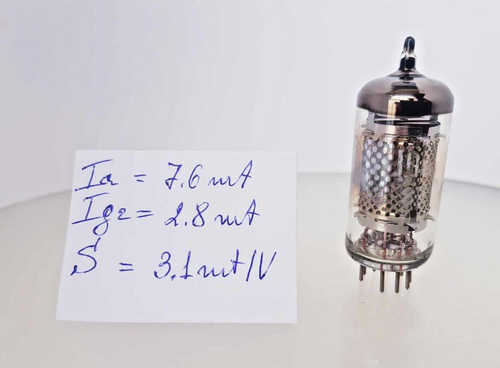 Ia = 7.6 mA
Ig2 = 2.8 mA
S = 3.1 mA/V